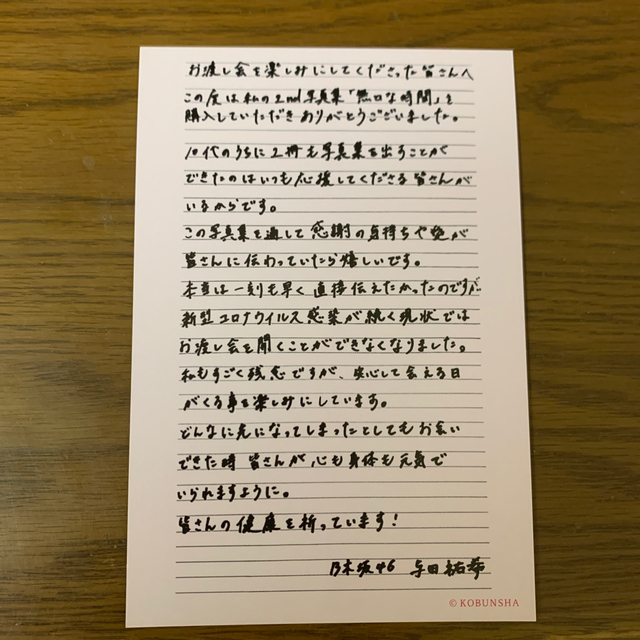 お渡し会を楽しみにしてくださった皆さんへ
この度は私の2nd写真集「無口な時間」を
購入していただきありがとうございました。
10代のうちに2冊も写真集を出すことが
できたのはいつも応援してくださる皆さんが
いるからです。
この写真集を通して感謝の気持ちや愛が
皆さんに伝わっていたら嬉しいです。
本当は一刻も早く直接伝えたかったのですが
新型コロナウイルス感染が続く現状では
お渡し会を開くことができなくなりました。
私もすごく残念ですが、安心して会える日
がくる事を楽しみにしています。
どんなに先になってしまったとしてもお会い
できた時皆さんが心も身体も元気で
いられますように。
皆さんの健康を祈っています!
乃木坂46 与田祐希
© KOBUNSHA